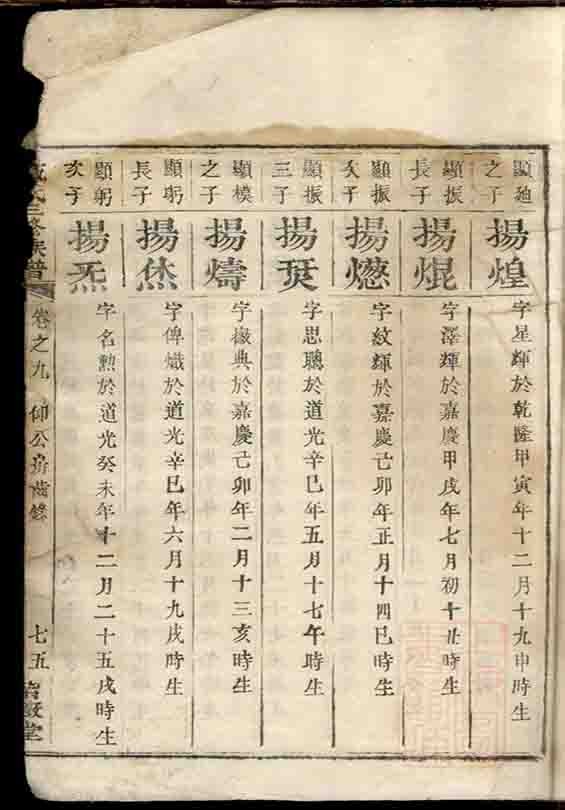 顯廸之子
揚煌
字星輝於乾隆甲寅年十二月十九申時生
顯振長子
揚焜
字澤輝於嘉慶甲戌年七月初十丑時生
顯振次子
揚㷱
字紋輝於嘉慶己卯年正月十四巳時生
顯振三子
揚烎
字思聰於道光辛巳年五月十七午時生
顯模之子
揚燽
字徽典於嘉慶己卯年二月十三亥時生
顯躬長子
揚烋
字俾熾於道光辛巳年六月十九戌時生
顯躬次子
揚炁
字名勲於道光癸未年十二月二十五戌時生
氏三修族譜
卷之九
仰公房齒錄
七五
堂